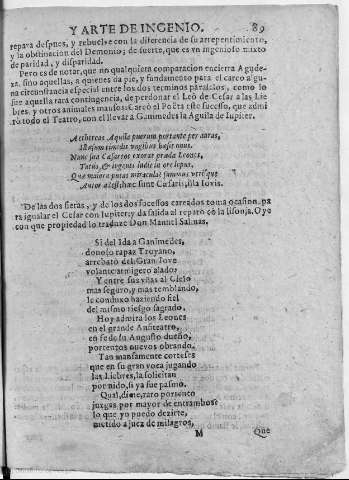 Y ARTE DE INGENIO. 89
repara despues, y rebuelve con la diferencia de su arrepentimiento,
y la obstinacion del Demonio; de suerte, que es vn ingenioso mixto
de paridad, y disparidad.
Pero es de notar, que no qualquiera comparacion encierra Agude-
za, sino aquellas, a quienes da pie, y fundamento para el careo algu-
na circunstancia especial entre los dos terminos paralelos, como lo
fue aquella rara contingencia, de perdonar el Leō de Cesar a las Lie
bres, y otros animales mansos. Careò el Poeta este sucesso, que admi
rò todo el Teatro, con el llevar a Ganimedes la Aguila de Iupiter.
Aethereas Aquila puerum portante per auras,
Illæsum timidis vnguibus hæsit onus.
Nunc sua Cæsareos exorat præda Leones,
Tutus, & ingenti ludit in ore lepus.
Quæ maiora putas miracula? summus vtrique
Autor adest: hæc sunt Cæsaris, illa Iovis.
De las dos fieras, y de los dos sucessos careados toma ocasion, pa
ra igualar el Cesar con Iupiter; y da salida al reparo cō la lisonja. Oye
con que propiedad lo traduze Don Manuel Salinas.
Si del Ida a Ganimedes,
donoso rapaz Troyano,
arrebatò del Gran Jove
volante armigero alado:
Y entre sus vñas al Cielo
mas seguro, y mas temblando,
le conduxo haziendo fiel
del mismo riesgo sagrado.
Hoy admira los Leones
en el grande Anfiteatro,
en fè de su Augusto dueño,
portentos nuevos obrando.
Tan mansamente corteses
que en su gran voca jugando
las Liebres, la solicitan
por nido, si ya fue pasmo.
Qual, dime, raro portento
juzgas por mayor de entrambos?
lo que yo puedo dezirte,
metido a juez de milagros,
M Que